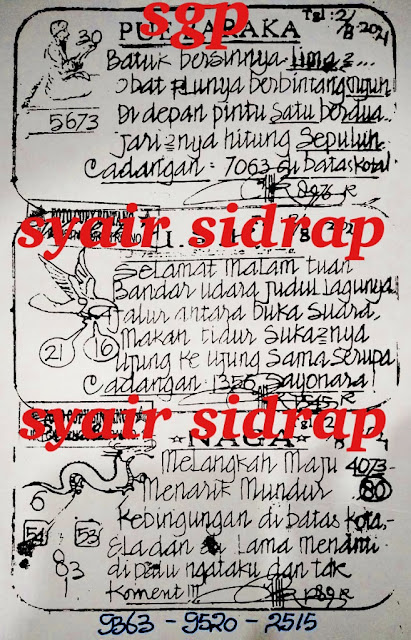 sgp
Tgl: 2/
8-2021
30
Batuk bersinnya lima 2...
obat punya berbintang
Di depan pintu satu berdua
jari2nya hitung Sepuluh
5673
Cadangan: 7063 di batas kota!
R 8976 R
syair sidrap
Selamat malam tuan
Bandar udara judul lagunya
Jalur antara buka suara,
makan tidur suka2nya
ujung ke ujung sama serupa
21 16
Cadangan: 1356 Sayonara!
syair sidrap
NAGA
Melangkah Maju 4073-
Menarik Mundur 80
Kebingungan di batas kota,-
6
54 53
lama menanti
83
1
dan tak
Koment!!!
9363 - 9520 - 2515